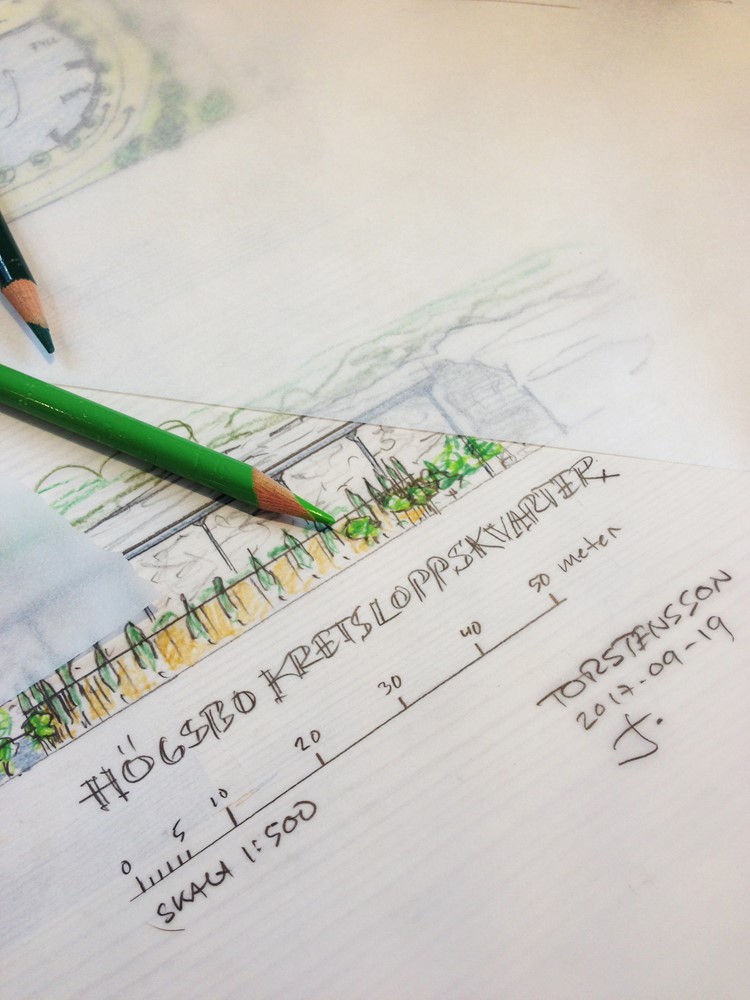 HÖGSBO KRETSLOPPSKVARTER
0 5 10 20 30 40 50 meter
SKALA 1:500
TORSTENSSON
2017-09-19